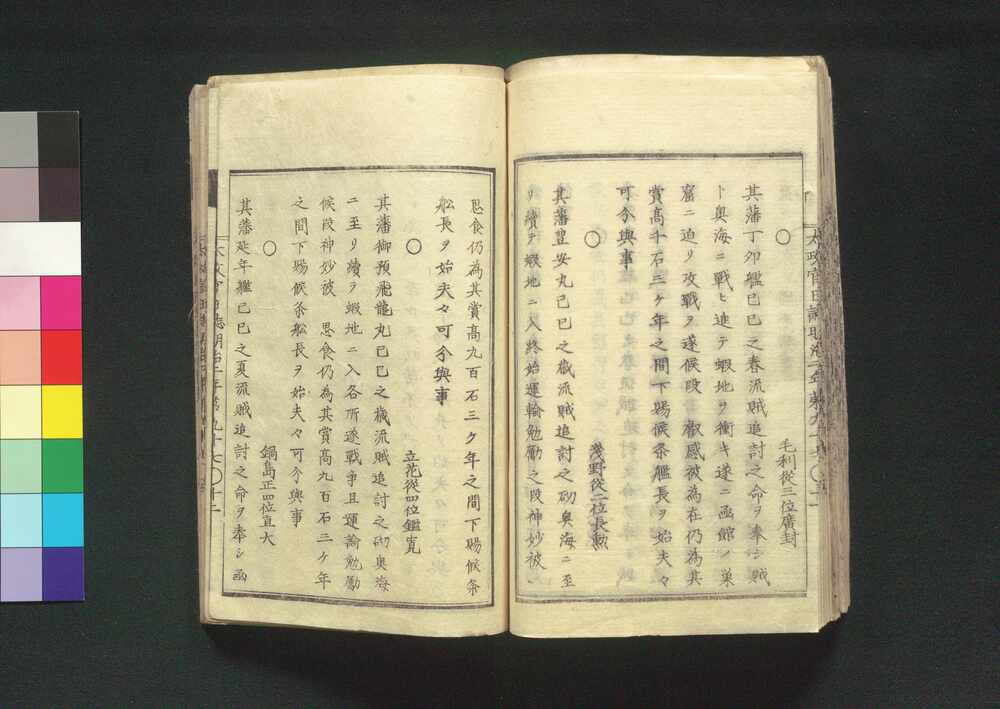 ○
毛利從三位廣封
其藩丁卯艦己巳之春流賊追討之命ヲ奉シ賊
ト奥海ニ戰ヒ進テ蝦地ヲ衝キ遂ニ函館ノ巣
窟ニ迫リ攻戰ヲ遂候段 叡感被為在仍為其
賞高千石三ケ年之間下賜候条艦長ヲ始夫々
可分與事
○
淺野從二位長勲
其藩豊安丸己巳之歳流賊追討之砌奥海ニ至
リ續ヲ蝦地ニ入終始運輸勉勵之段神妙被
思食仍為其賞高九百石三ケ年之間下賜候条
舩長ヲ始夫々可分與事
○
立花從四位鑑寛
其藩御預飛龍丸己巳之歳流賊追討之砌奥海
ニ至リ續ヲ蝦地ニ入各所遂戰争且運輸勉勵
候段神妙被 思食仍為其賞高九百石三ケ年
之間下賜候条舩長ヲ始夫々可分與事
○
鍋島正四位直大
其藩延年艦己巳之夏流賊追討之命ヲ奉シ函